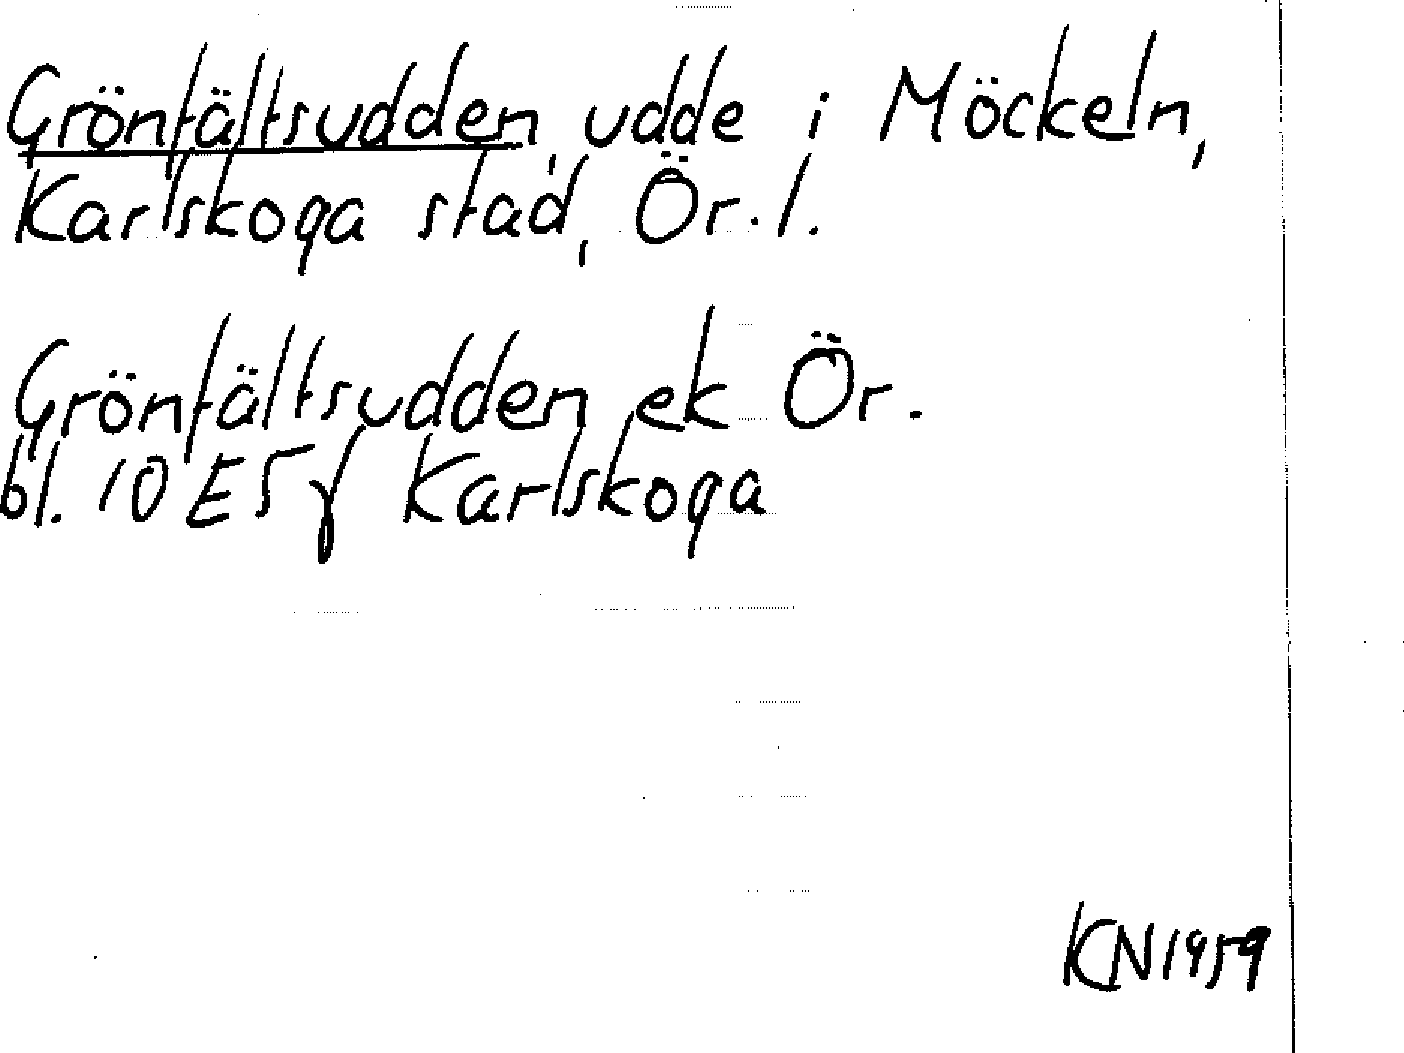 Grönfältsudden, udde i Möckeln,
Karlskoga stad, Ör. l.
Grönfältsudden ek Ör.
bl. 10 E 5 f Karlskoga
KN 1959